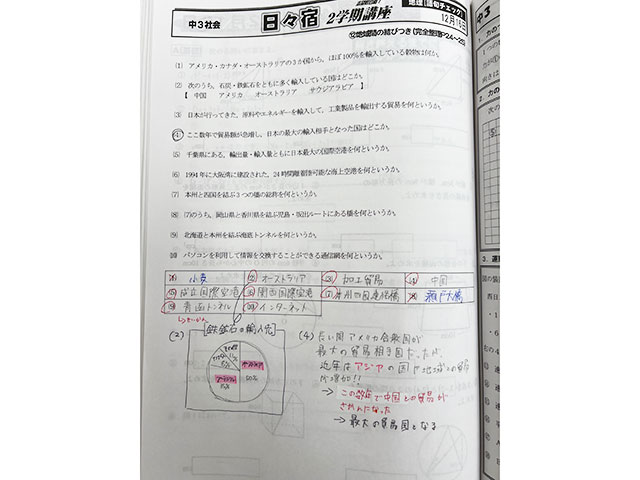 中3社会
日々宿
2学期講座
12月16日
⑫地域間の結びつき(完全整理P24~25)
(1) アメリカ・カナダ・オーストラリアの3か国から、ほぼ100%を輸入している穀物は何か。
(2) 次のうち、石炭・鉄鉱石をともに多く輸入している国はどこか。
【 中国 アメリカ オーストラリア サウジアラビア 】
(3) 日本が行ってきた、原料やエネルギーを輸入して、工業製品を輸出する貿易を何というか。
(4) ここ数年で貿易額が急増し、日本の最大の輸入相手となった国はどこか。
(5) 千葉県にある、輸出量・輸入量ともに日本最大の国際空港を何というか。
(6) 1994年に大阪湾に建設された、24時間離着陸可能な海上空港を何というか。
(7) 本州と四国を結ぶ3つの橋の総称を何というか。
(8) (7)のうち、岡山県と香川県を結ぶ児島・坂出ルートにある橋を何というか。
(9) 北海道と本州を結ぶ海底トンネルを何というか。
(10) パソコンを利用して情報を交換することができる通信網を何というか。
(1) 小麦 (2) オーストラリア (3) 加工貿易 (4) 中国
(5) 成田国際空港 (6) 関西国際空港 (7) 本州四国連絡橋 (8) 瀬戸大橋
(9) 青函トンネル (10) インターネット
せいかん
(2) [鉄鉱石の輸入先]
(4) 長い間アメリカ合衆国が
最大の貿易相手国だったが、
近年はアジアの国や地域との貿易
が増加!!
→ この数年で中国との貿易が
さかんになった
→ 最大の貿易国となる